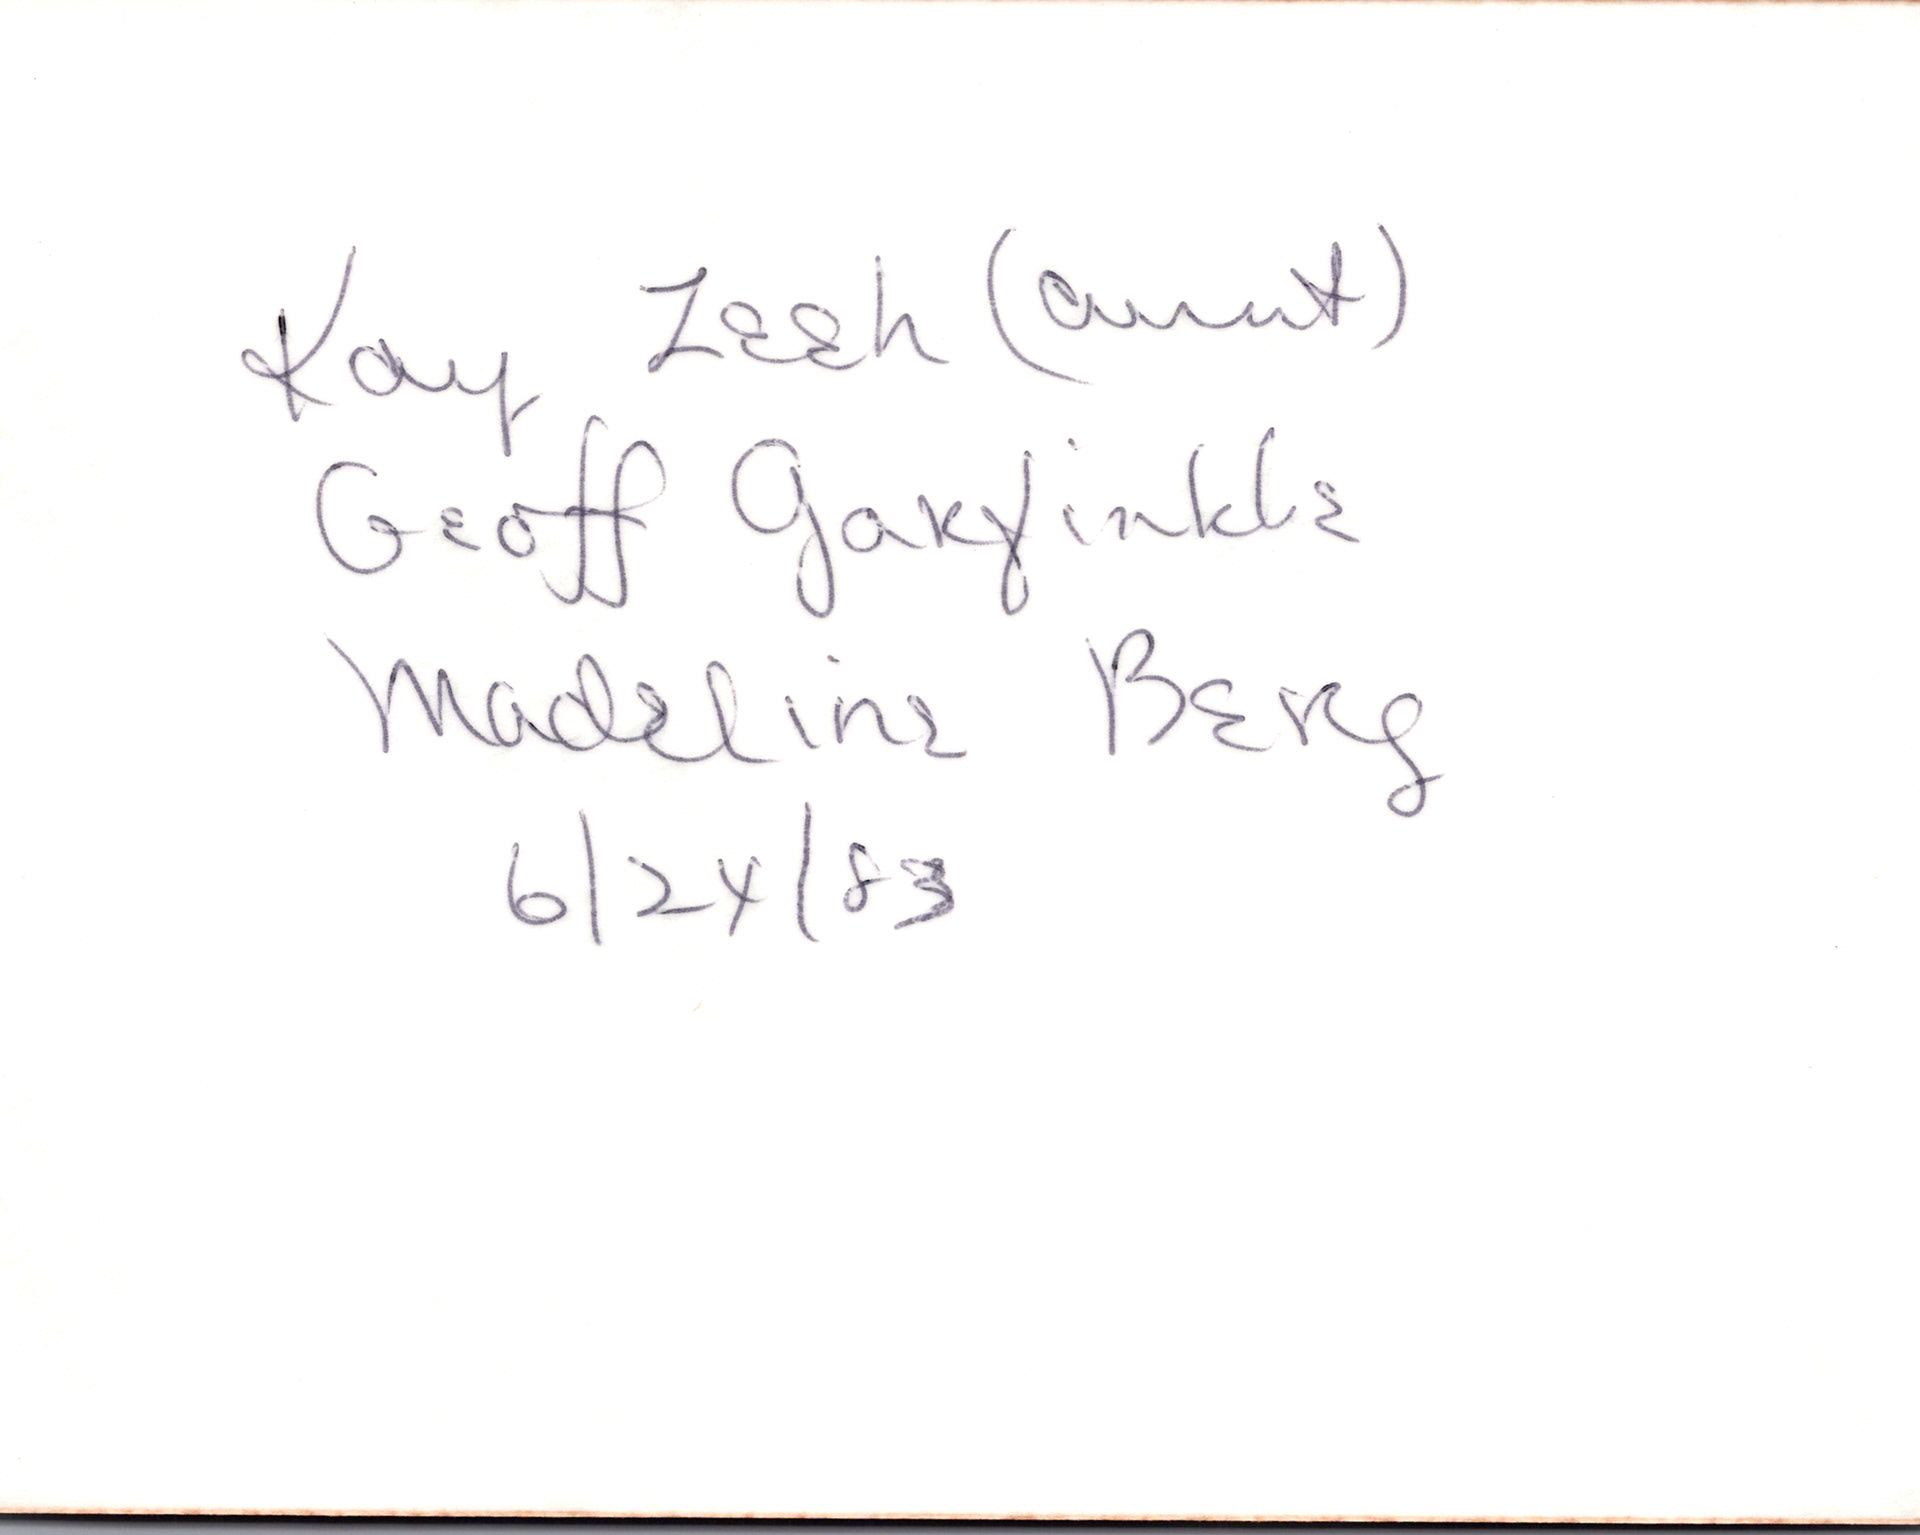 Kay Zeeh (aunt)
Geoff Garfinkle
Madeline Berg
6/24/83